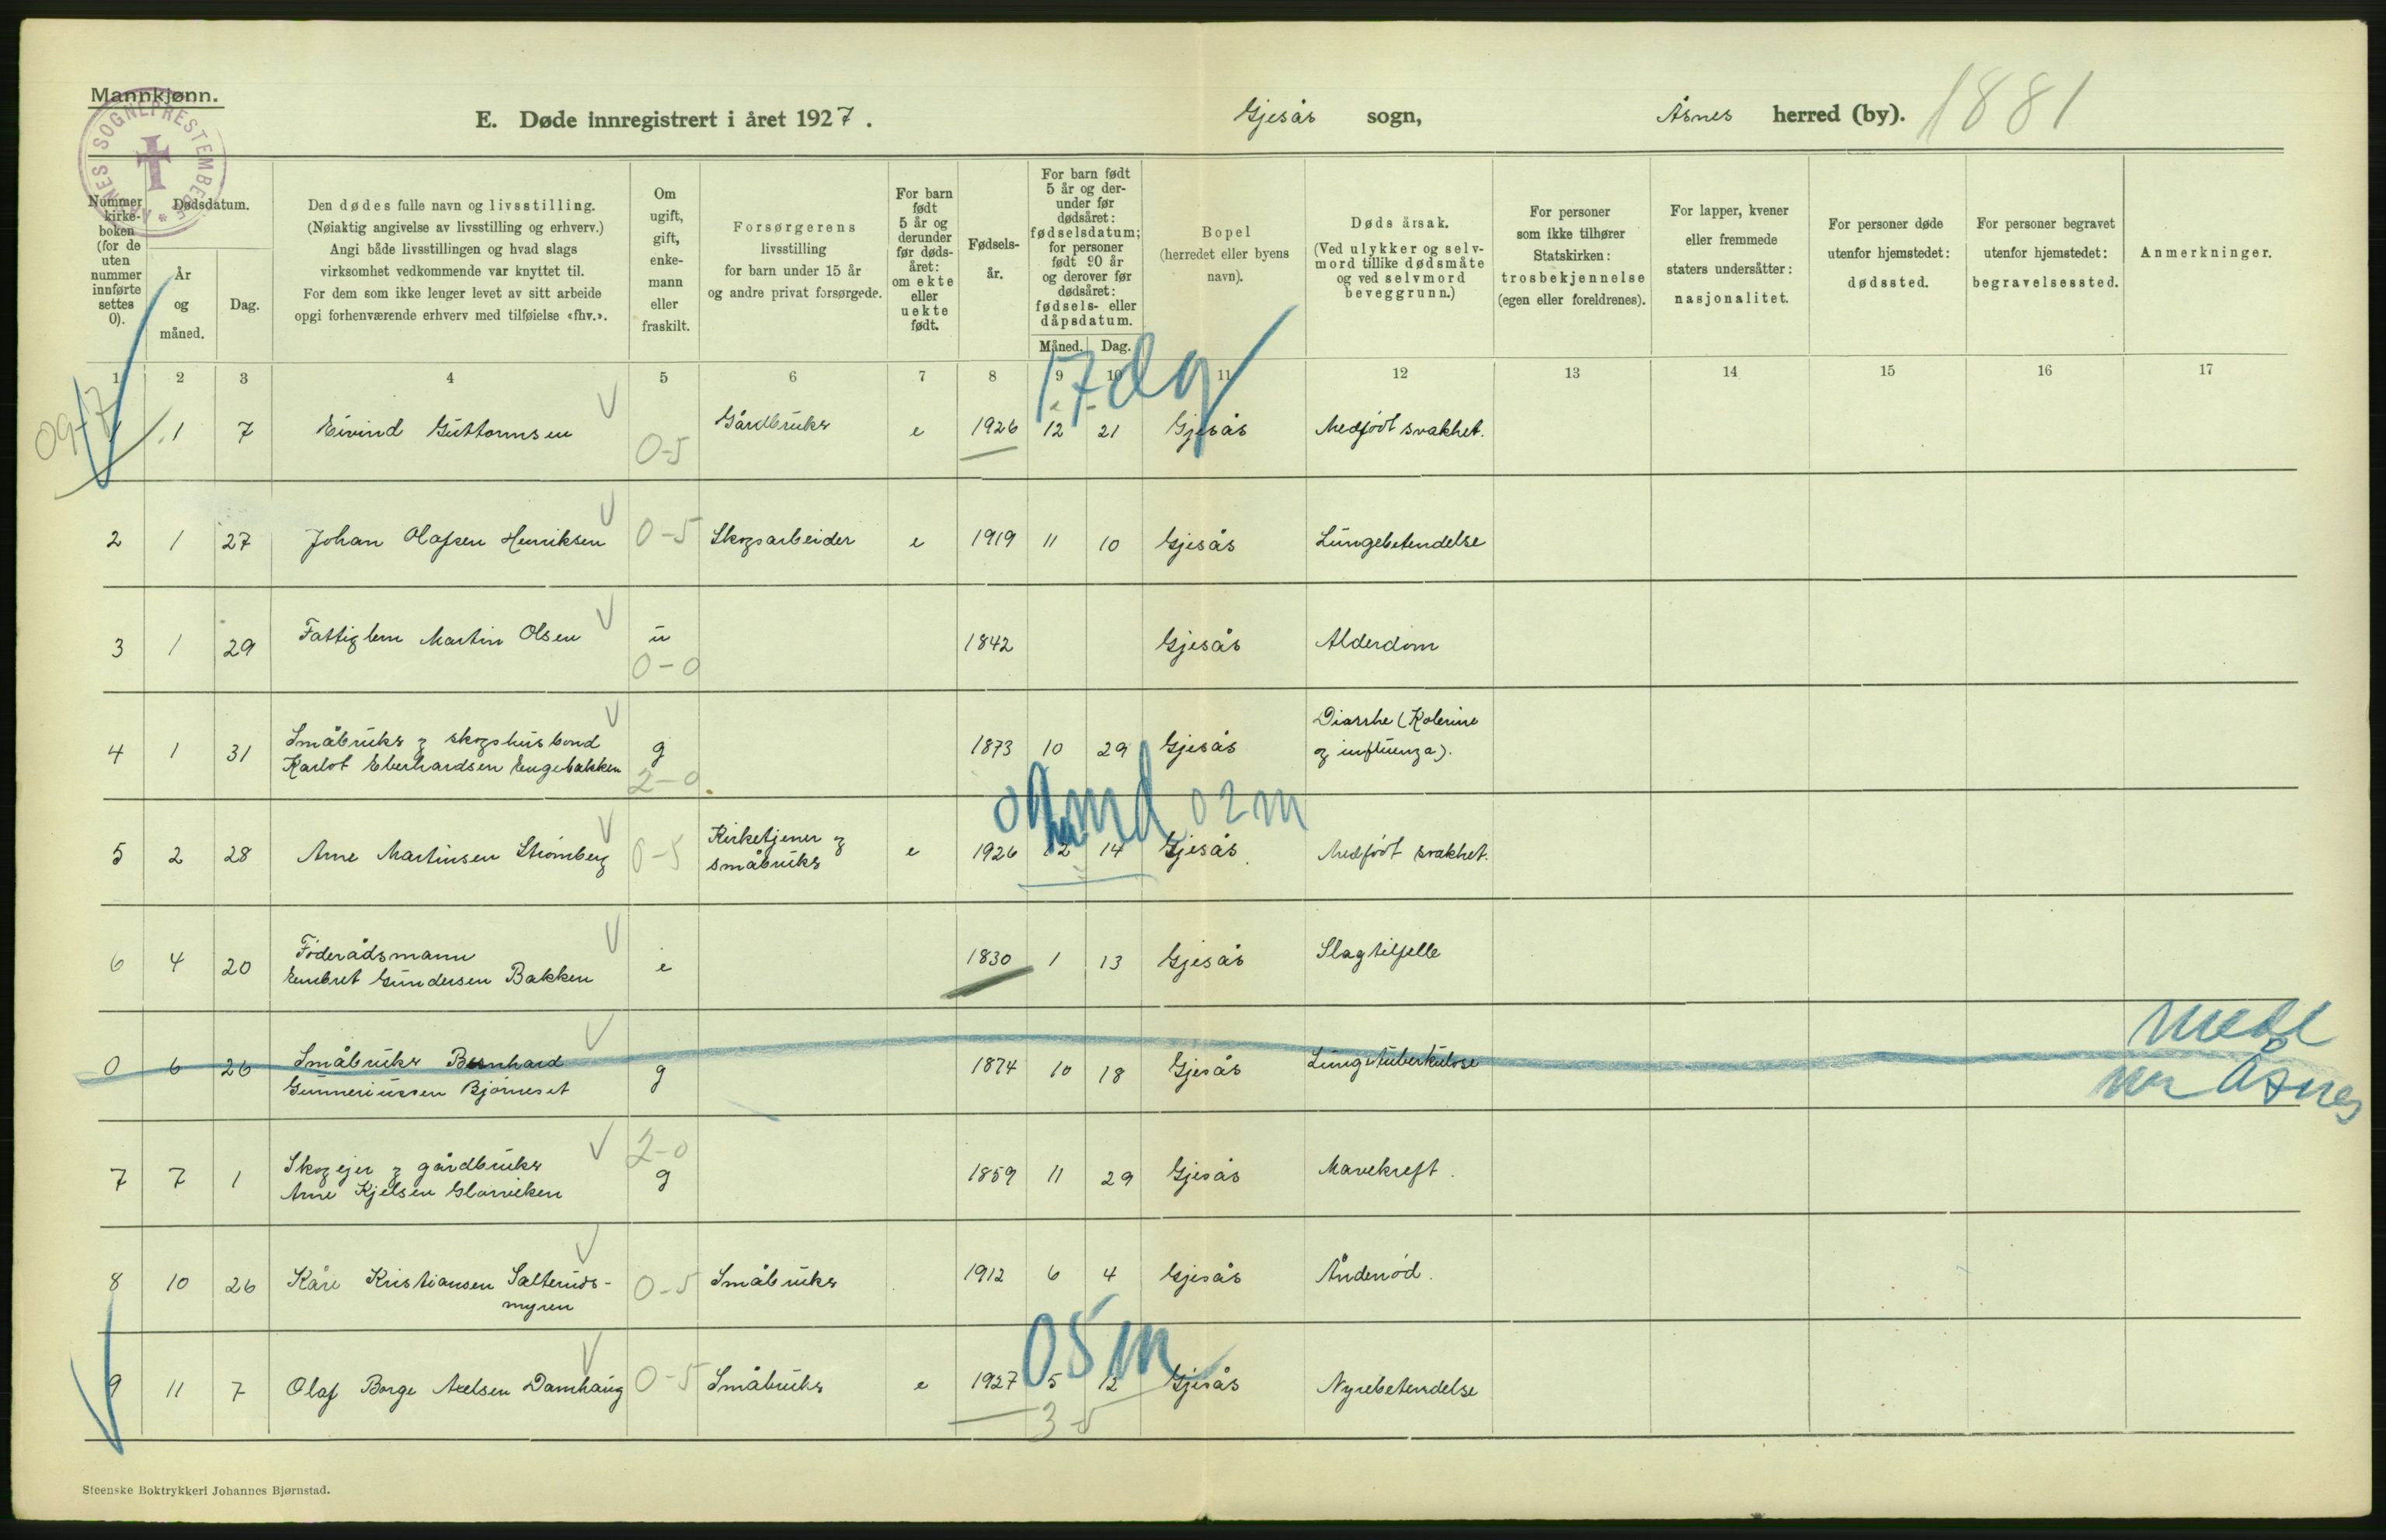 Mannkjønn.
E. Døde innregistrert i året 1927. Gjesås sogn, Åsnes herred (by). 1881
ÅSNES SOGNEPRESTEMBEDE
Nummer
kirke-
boken
(for de
uten
nummer
innførte
settes
0).
Dødsdatum.
År
og
måned.
Dag.
Den dødes fulle navn og livsstilling.
(Nøiaktig angivelse av livsstilling og erhverv.)
Angi både livsstillingen og hvad slags
virksomhet vedkommende var knyttet til.
For dem som ikke lenger levet av sitt arbeide
opgi forhenværende erhverv med tilføielse «fhv.».
Om
ugift,
gift,
enke-
mann
eller
fraskilt.
Forsørgerens
livsstilling
for barn under 15 år
og andre privat forsørgede.
For barn
født
5 år og
derunder
før døds-
året:
om ekte
eller
uekte
født.
Fødsels-
år.
For barn født
5 år og der-
under før
dødsåret:
fødselsdatum;
for personer
født 90 år
og derover før
dødsåret:
fødsels- eller
dåpsdatum.
Måned. Dag.
Bopel
(herredet eller byens
navn).
Døds årsak.
(Ved ulykker og selv-
mord tillike dødsmåte
og ved selvmord
beveggrunn.)
For personer
som ikke tilhører
Statskirken:
trosbekjennelse
(egen eller foreldrenes).
For lapper, kvener
eller fremmede
staters undersåtter:
nasjonalitet.
For personer døde
utenfor hjemstedet:
dødssted.
For personer begravet
utenfor hjemstedet:
begravelsessted.
Anmerkninger.
1 2 3 4 5 6 7 8 9 10 11 12 13 14 15 16 17
17 dg
09-7
1 1 7 Eivind Guttormsen 0-5 Gårdbruker e 1926 12 21 Gjesås Medfødt svakhet.
2 1 27 Johan Olafsen Henriksen 0-5 Skogsarbeider e 1919 11 10 Gjesås Lungebetendelse
3 1 29 Fattiglem Martin Olsen u 1842 Gjesås Alderdom
0-0
4 1 31 Småbruker og skogshusbond g 1873 10 29 Gjesås Diarrhe (Kolerine
Karlot Eberhardsen Engebakken 2-0 og influenza).
02 m
5 2 28 Arne Martinsen Strömberg 0-5 Kirketjener og e 1926 12 14 Gjesås Medfødt svakhet.
småbruker
6 4 20 Föderådsmann e 1830 1 13 Gjesås Slagtilfelle
Embret Gundersen Bakken
0 6 26 Småbruker Bernhard g 1874 10 18 Gjesås Lungetuberkulose
Gunneriussen Björneset
Åsnes
2-0
7 7 1 Skogejer og gårdbruker g 1859 11 29 Gjesås Mavekreft.
Arne Kjelsen Glorviken
8 10 26 Kåre Kristiansen Salteruds- 0-5 Småbruker 1912 6 4 Gjesås Åndenød.
myren
05 m
9 11 7 Olaf Borge Axelsen Damhaug 0-5 Småbruker e 1927 5 12 Gjesås Nyrebetendelse
3-5
Steenske Boktrykkeri Johannes Bjørnstad.